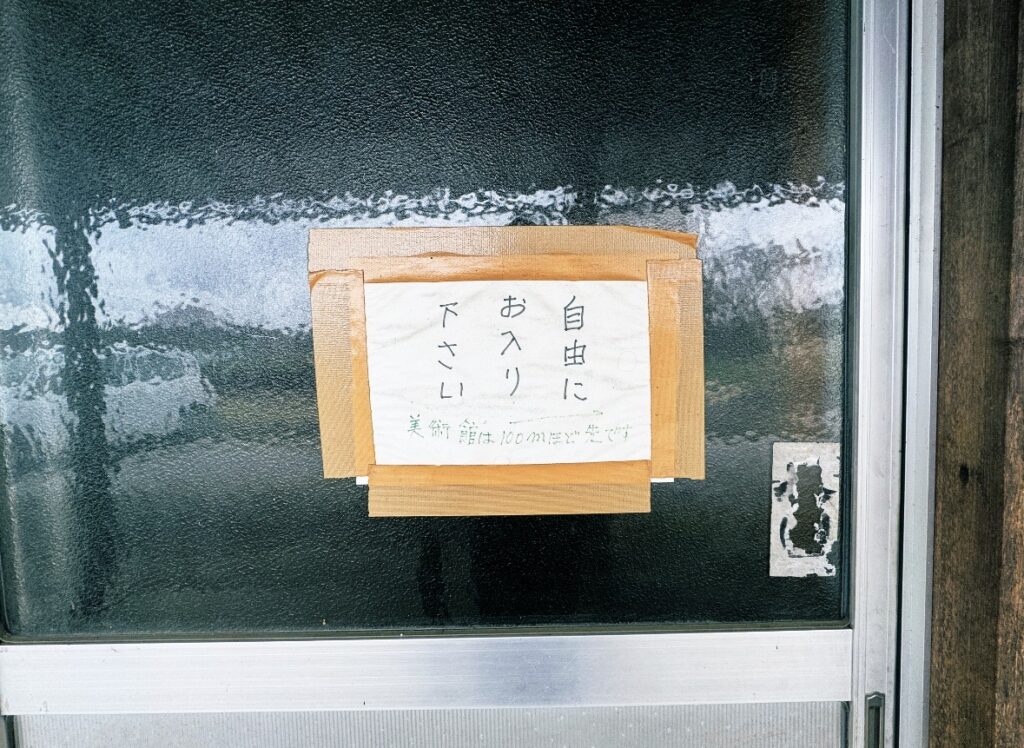 自由に
お入り
下さい
美術館は100mほど先です